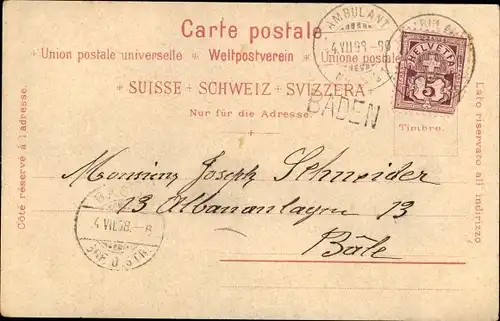 Carte postale
Union postale universelle * Weltpostverein * Unione postale
SUISSE + SCHWEIZ + SVIZZERA
Nur für die Adresse.
AMBULANT
4.VII.98.-
HELVETIA
5
BADEN
Timbre.
Côte réservé à l'adresse.
Lato riservato all' indirizzo
Monsieur Joseph Schneider
13 Albananlagen 13
Bâle
4.VII.98.-8